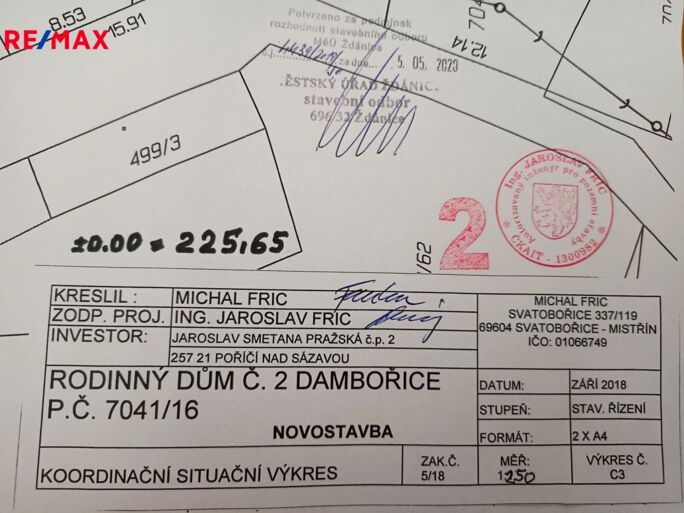 8.53
15.91
RE/MAX
Potvrzeno za podmínek
rozhodnutí stavebního odboru
MěÚ Ždánice
č.j. ze dne 5. 05. 2020
ĚSTSKÝ ÚŘAD ŽDÁNIC
stavební odbor
696 32 Ždánice
704
12.14
70
499/3
±0.00 = 225,65
/62
2
Ing. JAROSLAV FRIC
Autorizovaný inženýr pro pozemní stavby
ČKAIT - 1300982
KRESLIL : MICHAL FRIC
ZODP. PROJ. ING. JAROSLAV FRIC
INVESTOR: JAROSLAV SMETANA PRAŽSKÁ č.p. 2
257 21 POŘÍČÍ NAD SÁZAVOU
MICHAL FRIC
SVATOBOŘICE 337/119
69604 SVATOBOŘICE - MISTŘÍN
IČO: 01066749
RODINNÝ DŮM Č. 2 DAMBOŘICE
P.Č. 7041/16
NOVOSTAVBA
DATUM: ZÁŘÍ 2018
STUPEŇ: STAV. ŘÍZENÍ
FORMÁT: 2 X A4
KOORDINAČNÍ SITUAČNÍ VÝKRES
ZAK.Č.
5/18
MĚŘ:
1:250
VÝKRES Č.
C3